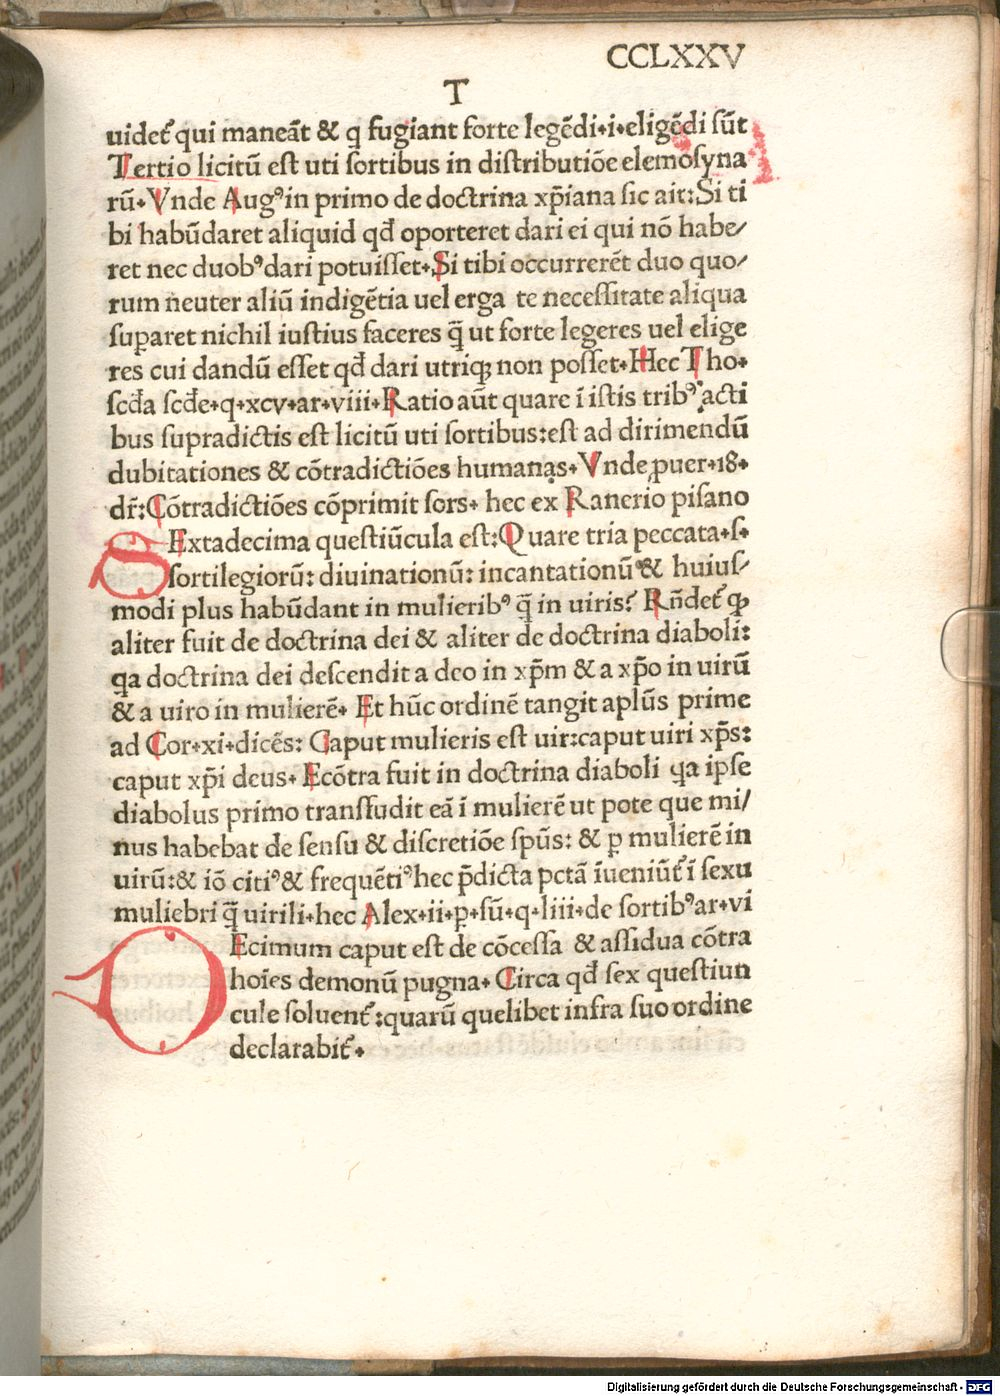 CCLXXV
T
uidet᷑ qui maneāt & q fugiant forte legēdi·i·eligēdi sūt
Tertio licitū est uti sortibus in distributiōe elemosyna
rū· Vnde Augꝰ in primo de doctrina xp̄iana sic ait: Si ti
bi habūdaret aliquid qđ oporteret dari ei qui nō habe/
ret nec duobꝰ dari potuisset· Si tibi occurrerēt duo quo/
rum neuter aliū indigētia uel erga te necessitate aliqua
suꝑaret nichil iustius faceres q̄ ut forte legeres uel elige
res cui dandū esset qđ dari utriqꝫ non posset· Hec Tho·
scđa scđe·q·xcv·ar·viii· Ratio aūt quare ī istis tribꝰ acti
bus supradictis est licitū uti sortibus: est ad dirimendū
dubitationes & cōtradictiōes humanas· Vnde ꝓuer·18·
dr̄: Cōtradictiōes cōprimit sors· hec ex Ranerio pisano
SExtadecima questiūcula est: Quare tria peccata·s·
sortilegiorū: diuinationū: incantationū & huius/
modi plus habūdant in mulieribꝰ q̄ in uiris? Rn̄det᷑ ꝙ
aliter fuit de doctrina dei & aliter de doctrina diaboli:
qa doctrina dei descendit a deo in xp̄m & a xp̄o in uirū
& a uiro in mulierē· Et hūc ordinē tangit aplūs prime
ad Cor·xi·dicēs: Caput mulieris est uir: caput uiri xp̄s:
caput xp̄i deus· Ecōtra fuit in doctrina diaboli qa ipse
diabolus primo transfudit eā ī mulierē ut pote que mi/
nus habebat de sensu & discretiōe spūs: & ꝑ mulierē in
uirū: & iō citiꝰ & frequētiꝰ hec p̄dicta pctā īueniūt᷑ ī sexu
muliebri q̄ uirili· hec Alex·ii·p·sū·q·liii·de sortibꝰ ar·vi
DEcimum caput est de cōcessa & assidua cōtra
hoīes demonū pugna· Circa qđ sex questiun
cule soluent᷑: quarū quelibet infra suo ordine
declarabit᷑·
Digitalisierung gefördert durch die Deutsche Forschungsgemeinschaft - DFG